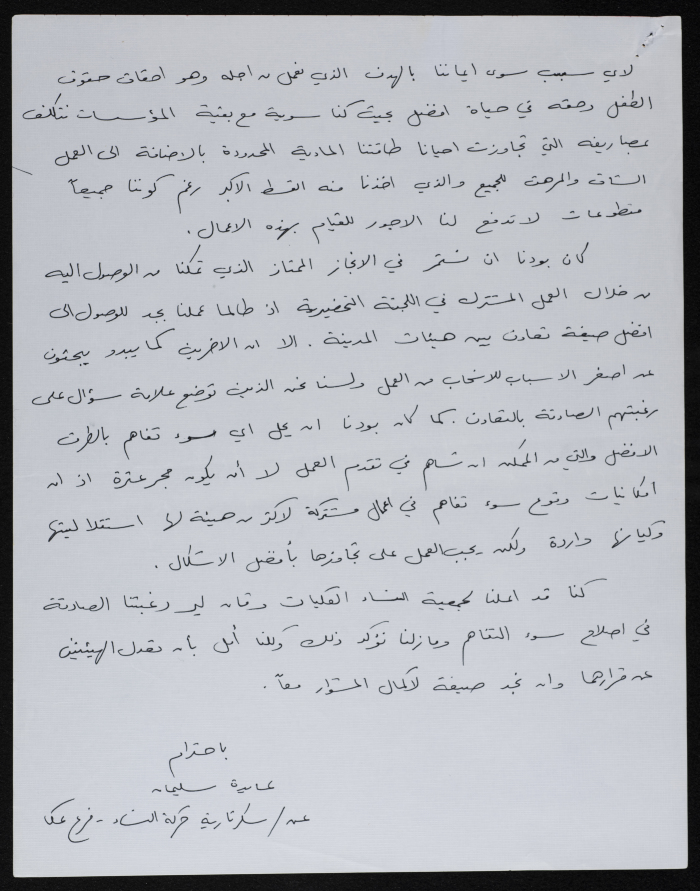 لاي سبب سوى ايماننا بالهدف الذي نعمل من اجله وهو احقاق حقوق
الطفل وحقه في حياة افضل بحيث كنا سوية مع بقية المؤسسات نتكلف
بمصاريفه التي تجاوزت احيانا طاقتنا المادية المحدودة بالاضافة الى العمل
الشاق والمرهق للجميع والذي اخذنا منه القسط الاكبر رغم كوننا جميعاً
متطوعات لا تدفع لنا الاجور للقيام بهذه الاعمال.
كان بودنا ان نستمر في الانجاز الممتاز الذي تمكنا من الوصول اليه
من خلال العمل المشترك في اللجنة التحضيرية اذ طالما عملنا بجد للوصول الى
افضل صيغة تعاون بين هيئات المدينة. الا ان الاخرين كما يبدو يبحثون
عن اصغر الاسباب للانسحاب من العمل ولسنا نحن الذين نوضع علامة سؤال على
رغبتهم الصادقة بالتعاون. كما كان بودنا ان يحل اي سوء تفاهم بالطرق
الافضل والتي من الممكن ان تساهم في تقدم العمل لا أن يكون حجر عثرة اذ ان
امكانيات وقوع سوء تفاهم في اعمال مشتركة لاكثر من هيئة لها استقلاليتها
وكيانها واردة ولكن يجب العمل على تجاوزها بأفضل الاشكال.
كنا قد اعلنا لجمعية النساء العكيات وقان لير رغبتنا الصادقة
في اصلاح سوء التفاهم ومازلنا نؤكد ذلك وكلنا أمل بأن تعدل الهيئتين
عن قرارهما وان نجد صيغة لاكمال المشوار معاً.
باحترام
عايدة سليمان
عن/ سكرتارية حركة النساء - فرع عكا